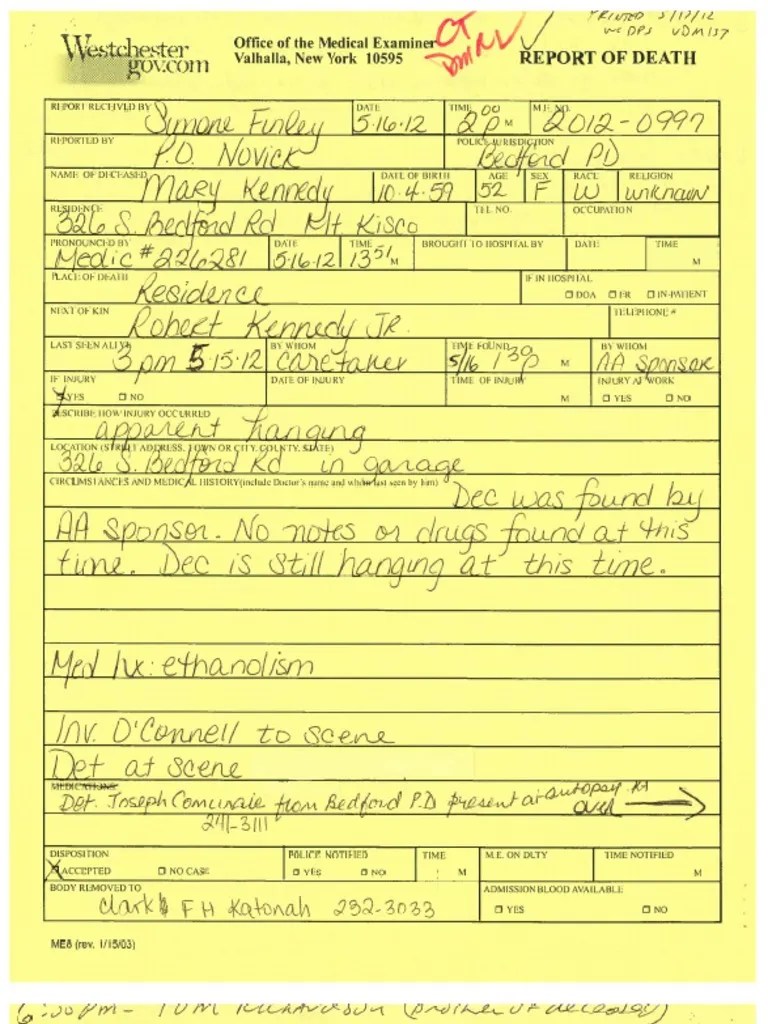 PRINTED 5/17/12
Westchester
gov.com
Office of the Medical Examiner
Valhalla, New York 10595
REPORT OF DEATH
REPORT RECEIVED BY Simone Finley DATE 5·16·12 TIME 2 00 p M M.E. NO. 2012-0997
REPORTED BY P.O. Novick POLICE JURISDICTION Bedford PD
NAME OF DECEASED Mary Kennedy DATE OF BIRTH 10·4·59 AGE 52 SEX F RACE W RELIGION unknown
RESIDENCE 326 S. Bedford Rd Mt Kisco TEL NO. OCCUPATION
PRONOUNCED BY Medic # 226281 DATE 5·16·12 TIME 13 51 M BROUGHT TO HOSPITAL BY DATE TIME M
PLACE OF DEATH Residence IF IN HOSPITAL DOA ER IN-PATIENT
NEXT OF KIN Robert Kennedy JR. TELEPHONE #
LAST SEEN ALIVE 3pm 5·15·12 BY WHOM caretaker TIME FOUND 5/16 1 30 p M BY WHOM AA sponsor
IF INJURY YES NO DATE OF INJURY TIME OF INJURY M INJURY AT WORK YES NO
DESCRIBE HOW INJURY OCCURRED
apparent hanging
LOCATION (STREET ADDRESS, TOWN OR CITY, COUNTY, STATE)
326 S. Bedford Rd in garage
CIRCUMSTANCES AND MEDICAL HISTORY (include Doctor's name and when last seen by him) Dec was found by
AA sponsor. No notes or drugs found at this
time. Dec is still hanging at this time.
Med hx: ethanolism
Inv. O'Connell to scene
Det at scene
MEDICATIONS
Det. Joseph Comunale from Bedford P.D present at autopsy.
over
241-3111
DISPOSITION ACCEPTED NO CASE POLICE NOTIFIED YES NO TIME M M.E. ON DUTY TIME NOTIFIED M
BODY REMOVED TO Clark's F H Katonah 232-3033 ADMISSION BLOOD AVAILABLE YES NO
ME8 (rev. 1/15/03)